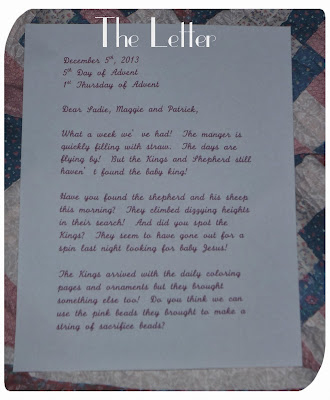 The Letter
December 5th, 2013
5th Day of Advent
1st Thursday of Advent
Dear Sadie, Maggie and Patrick,
What a week we've had! The manger is
quickly filling with straw. The days are
flying by! But the Kings and Shepherd still
haven't found the baby king!
Have you found the shepherd and his sheep
this morning? They climbed dizzying heights
in their search! And did you spot the
Kings? They seem to have gone out for a
spin last night looking for baby Jesus!
The Kings arrived with the daily coloring
pages and ornaments but they brought
something else too! Do you think we can
use the pink beads they brought to make a
string of sacrifice beads?